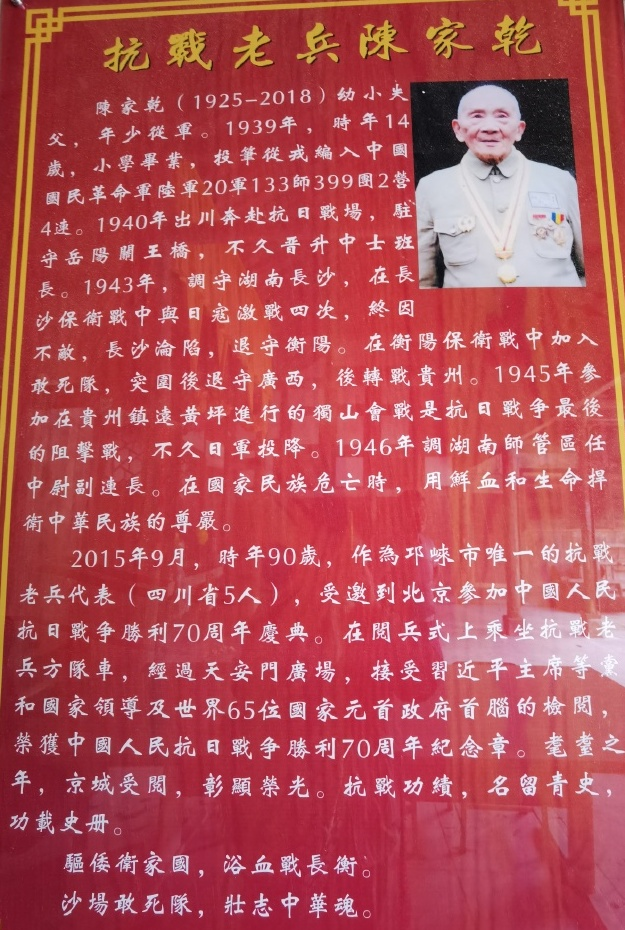 抗戰老兵陳家乾
陳家乾（1925-2018）幼小失
父，年少從軍。1939年，時年14
歲，小學畢業，投筆從戎編入中國
國民革命軍陸軍20軍133師399團2營
4連。1940年出川奔赴抗日戰場，駐
守岳陽關王橋，不久晉升中士班
長。1943年，調守湖南長沙，在長
沙保衛戰中與日寇激戰四次，終因
不敵，長沙淪陷，退守衡陽。在衡陽保衛戰中加入
敢死隊，突圍後退守廣西，後轉戰貴州。1945年參
加在貴州鎮遠黃坪進行的獨山會戰是抗日戰爭最後
的阻擊戰，不久日軍投降。1946年調湖南師管區任
中尉副連長。在國家民族危亡時，用鮮血和生命捍
衛中華民族的尊嚴。
2015年9月，時年90歲，作為邛崍市唯一的抗戰
老兵代表（四川省5人），受邀到北京參加中國人民
抗日戰爭勝利70周年慶典。在閱兵式上乘坐抗戰老
兵方隊車，經過天安門廣場，接受習近平主席等黨
和國家領導及世界65位國家元首政府首腦的檢閱，
榮獲中國人民抗日戰爭勝利70周年紀念章。耄耋之
年，京城受閱，彰顯榮光。抗戰功績，名留青史，
功載史册。
驅倭衛家國，浴血戰長衡。
沙場敢死隊，壯志中華魂。